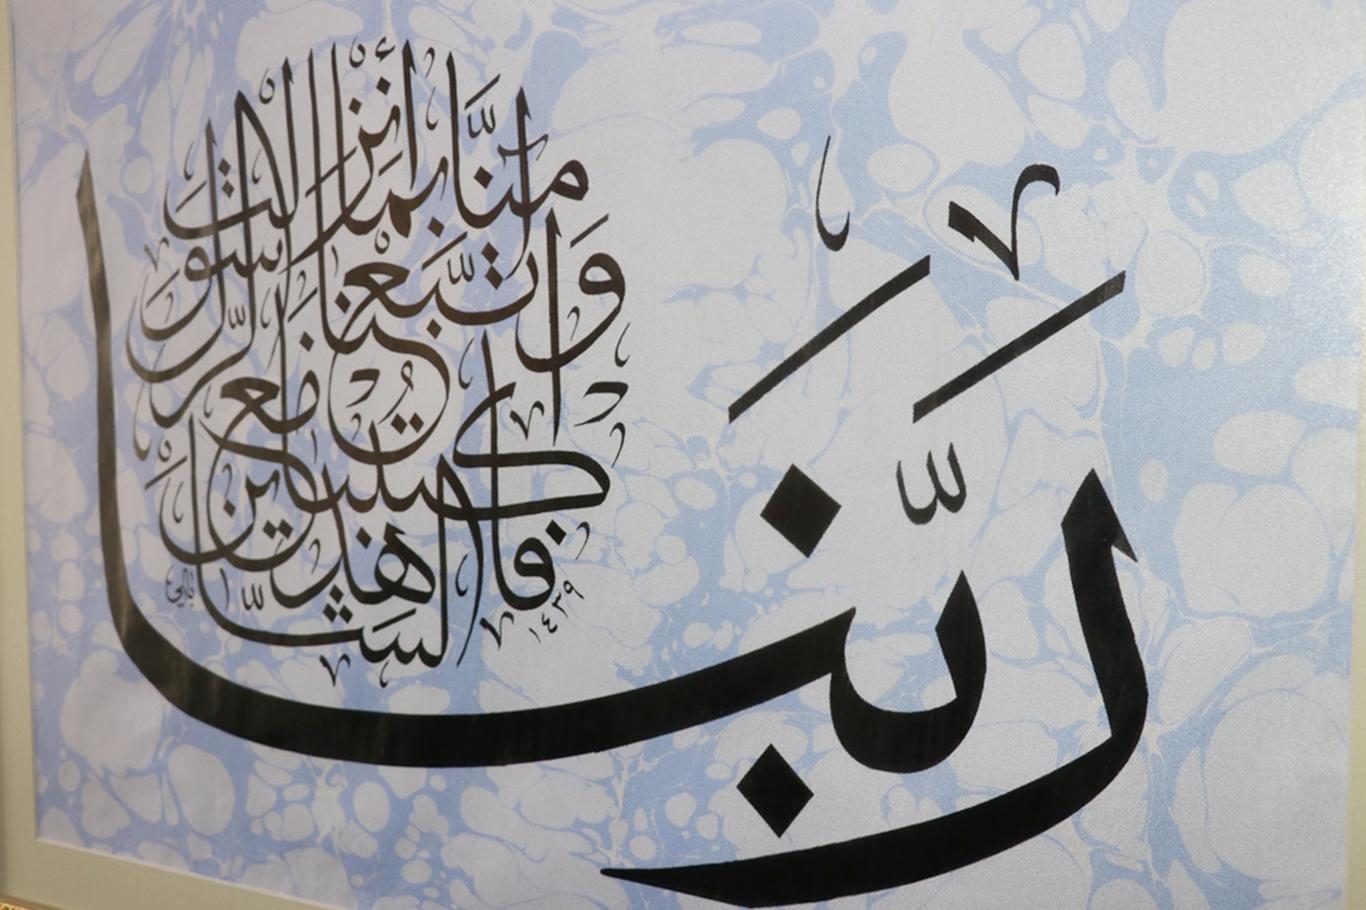 رَبَّنَا
آمَنَّا بِمَا أَنزَلْتَ
وَاتَّبَعْنَا الرَّسُولَ
فَاكْتُبْنَا مَعَ
الشَّاهِدِينَ
١٤٣٩